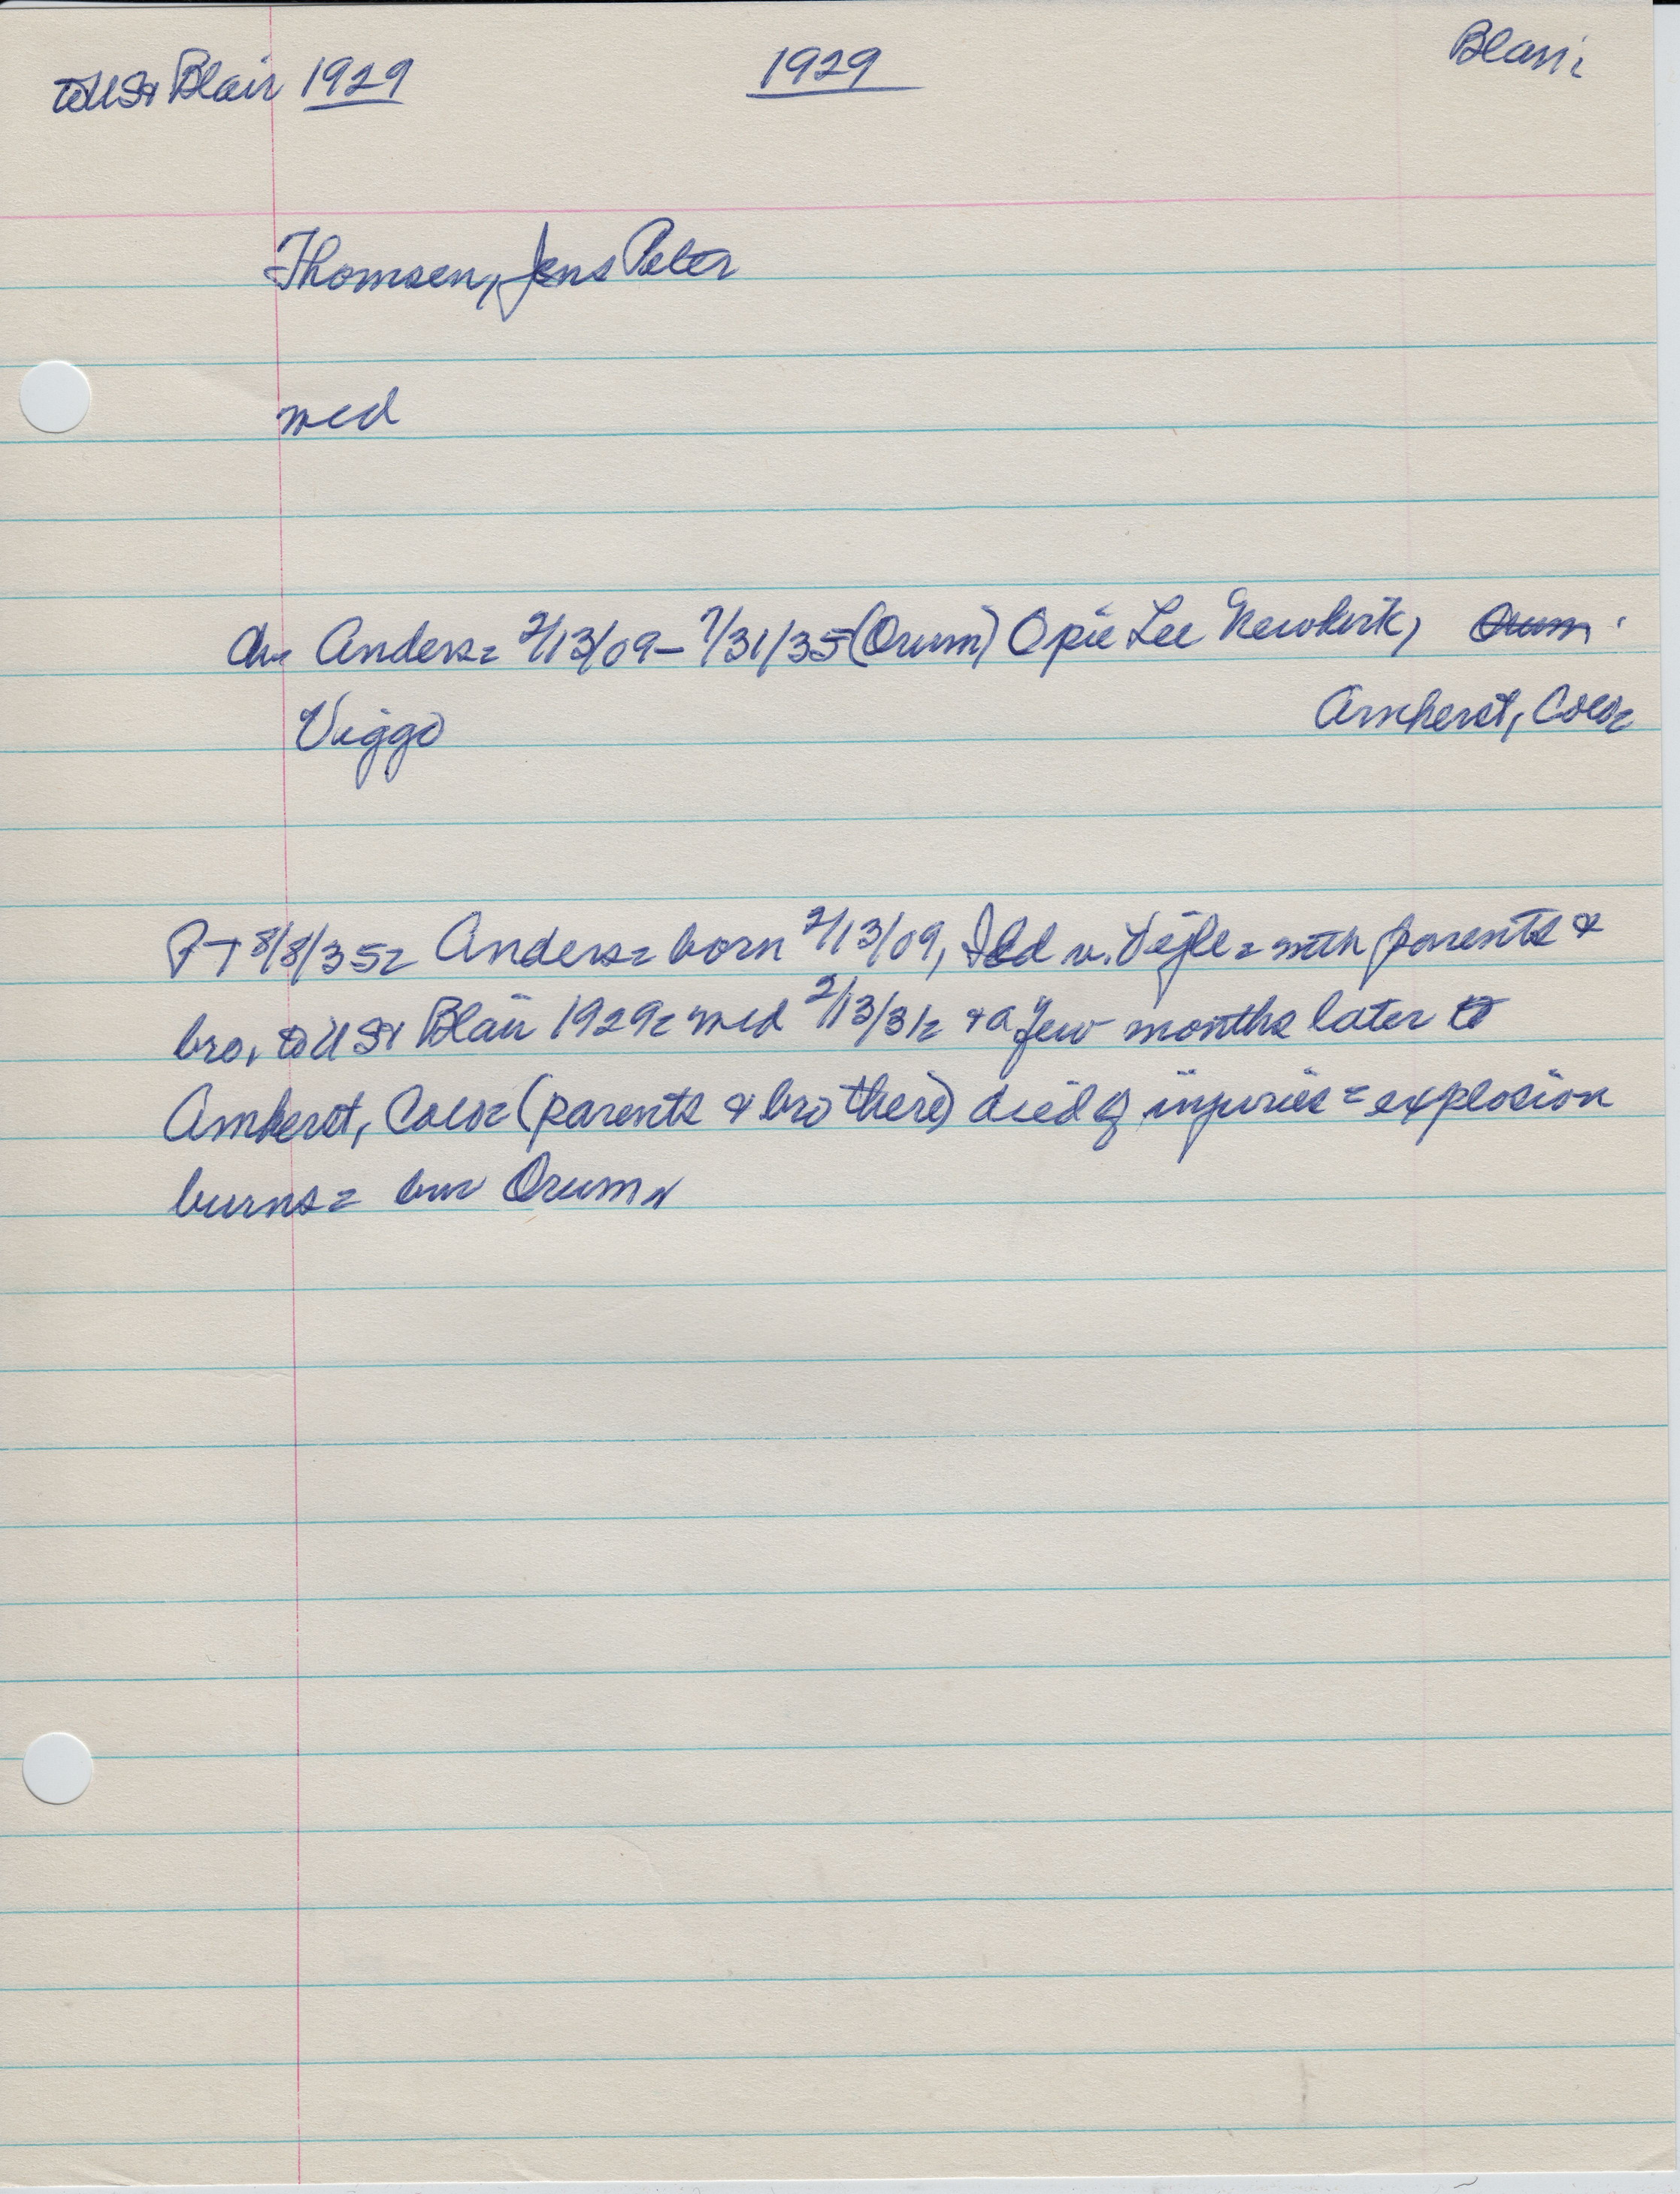 to US & Blair 1929 1929 Blair
Thomsen, Jens Peter
med
ch Anders = 2/13/09 - 7/31/35 (Orum) Opie Lee Newkirk, Orum
Viggo Amherst, Colo
PT 8/8/35 = Anders = born 2/13/09, v. Vejle = with parents &
bro. to US & Blair 1929 = med 2/13/31 = & a few months later to
Amherst, Colo = (parents & bro there) died of injuries = explosion
burns = bur Orum